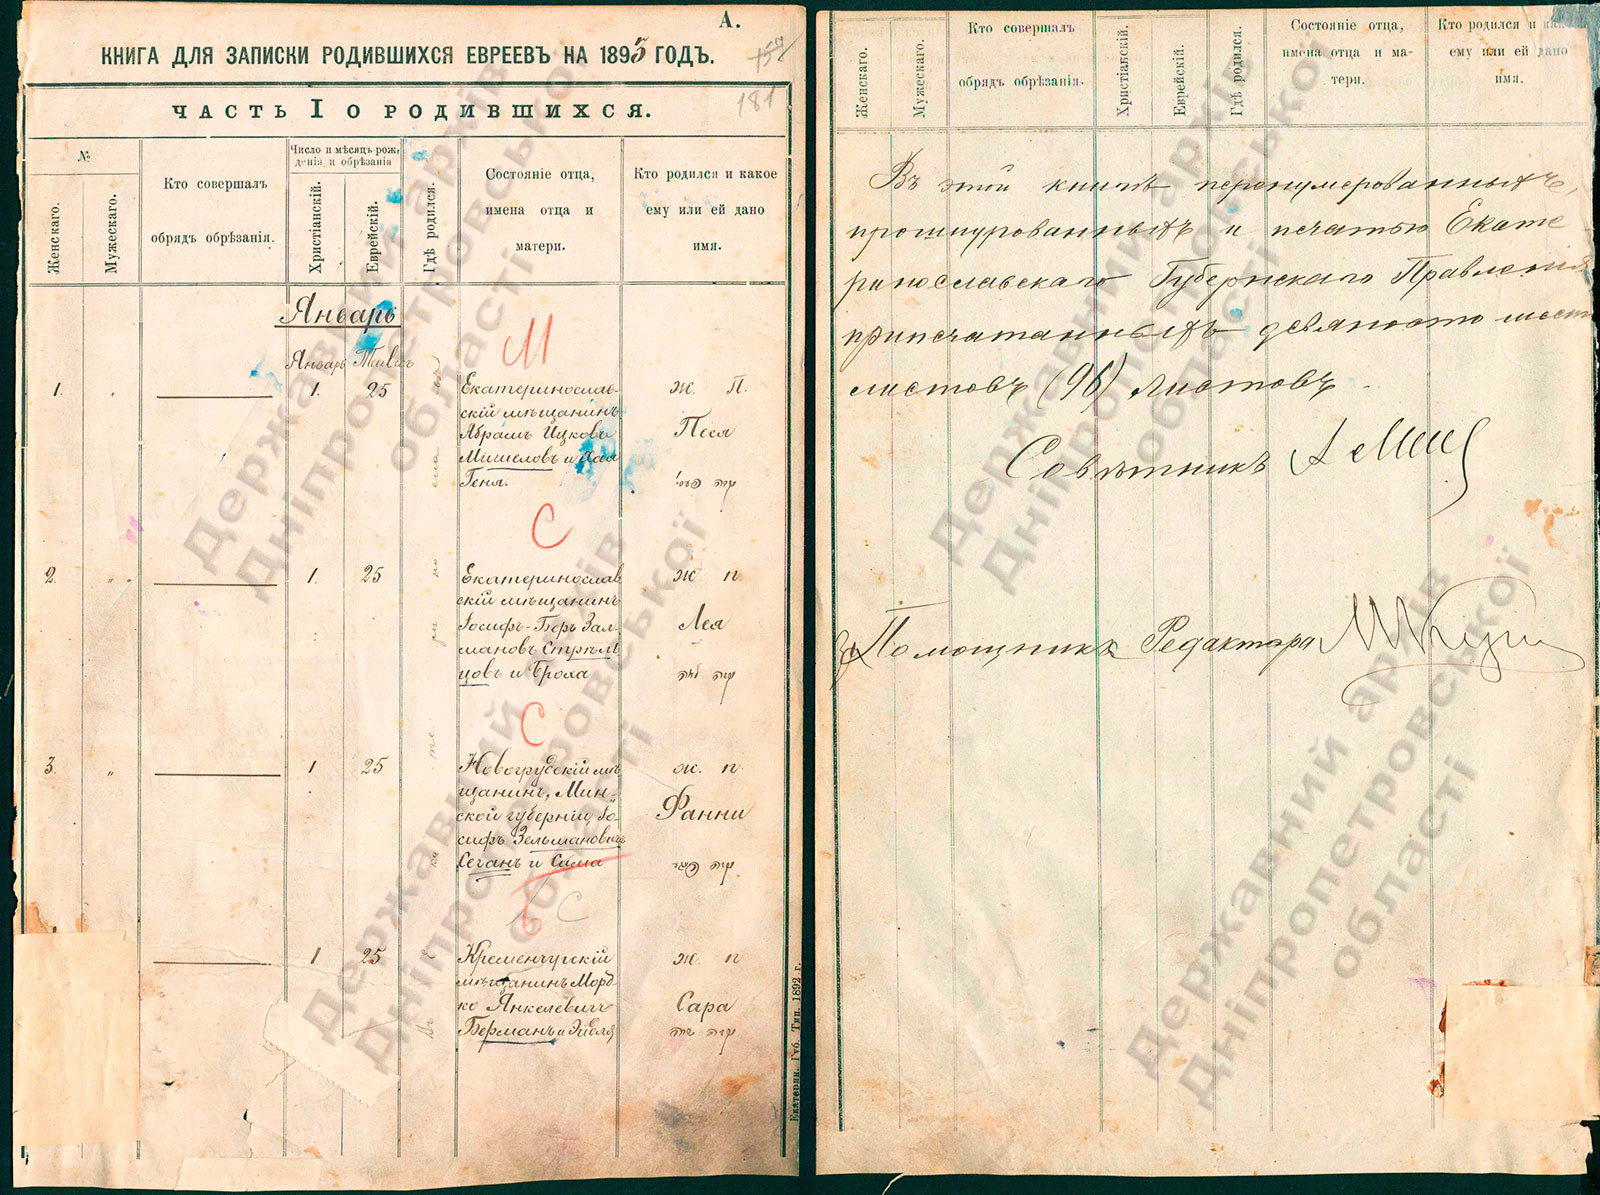 А.
КНИГА ДЛЯ ЗАПИСКИ РОДИВШИХСЯ ЕВРЕЕВЪ НА 1895 ГОДЪ.
181
ЧАСТЬ I О РОДИВШИХСЯ.
№
Женскаго.
Мужескаго.
Кто совершалъ
обрядъ обрѣзанія.
Число и мѣсяцъ рож-
денія и обрѣзанія
Христіанскій.
Еврейскій.
Гдѣ родился.
Состояніе отца,
имена отца и
матери.
Кто родился и какое
ему или ей дано
имя.
Январь
Январь Тивес
М
1. 1. 25
Екатеринослав-
скій мѣщанинъ
Абрамъ Ицковъ
Мишеловъ и Хая
Геня.
Ж. П.
Песя
С
2. 1. 25
Екатеринослав
скій мѣщанинъ
Іосифъ-Беръ Зал-
мановъ Стрѣль
цовъ и Броха
Ж п.
Лея
С
3. 1 25
Новогрудскій мѣ
щанинъ, Мин-
ской губерніи, Іо-
сифъ Зельмановичъ
Каганъ и Сима
Ж. п.
Фанни
С
1 25
Кременчугскій
мѣщанинъ Морд-
ко Янкелевичъ
Берманъ и Эйдля
Ж. п
Сара
שרה
Екатерин. Губ. Тип. 1892 г.
Женскаго.
Мужескаго.
Кто совершалъ
обрядъ обрѣзанія.
Христіанскій.
Еврейскій.
Гдѣ родился.
Состояніе отца,
имена отца и ма-
тери.
Кто родился и како
ему или ей дано
имя.
Въ этой книгѣ перенумерованныхъ,
прошнурованныхъ и печатью Екате
ринославскаго Губернскаго Правленія
припечатанныхъ девяносто шесть
листовъ (96) листовъ.
Совѣтникъ
За Помощника Редактора
Державний архів
Дніпропетровської
області
Державний архів
Дніпропетровської
області
Державний архів
Дніпропетровської
області
Державний архів
Дніпропетровської
області